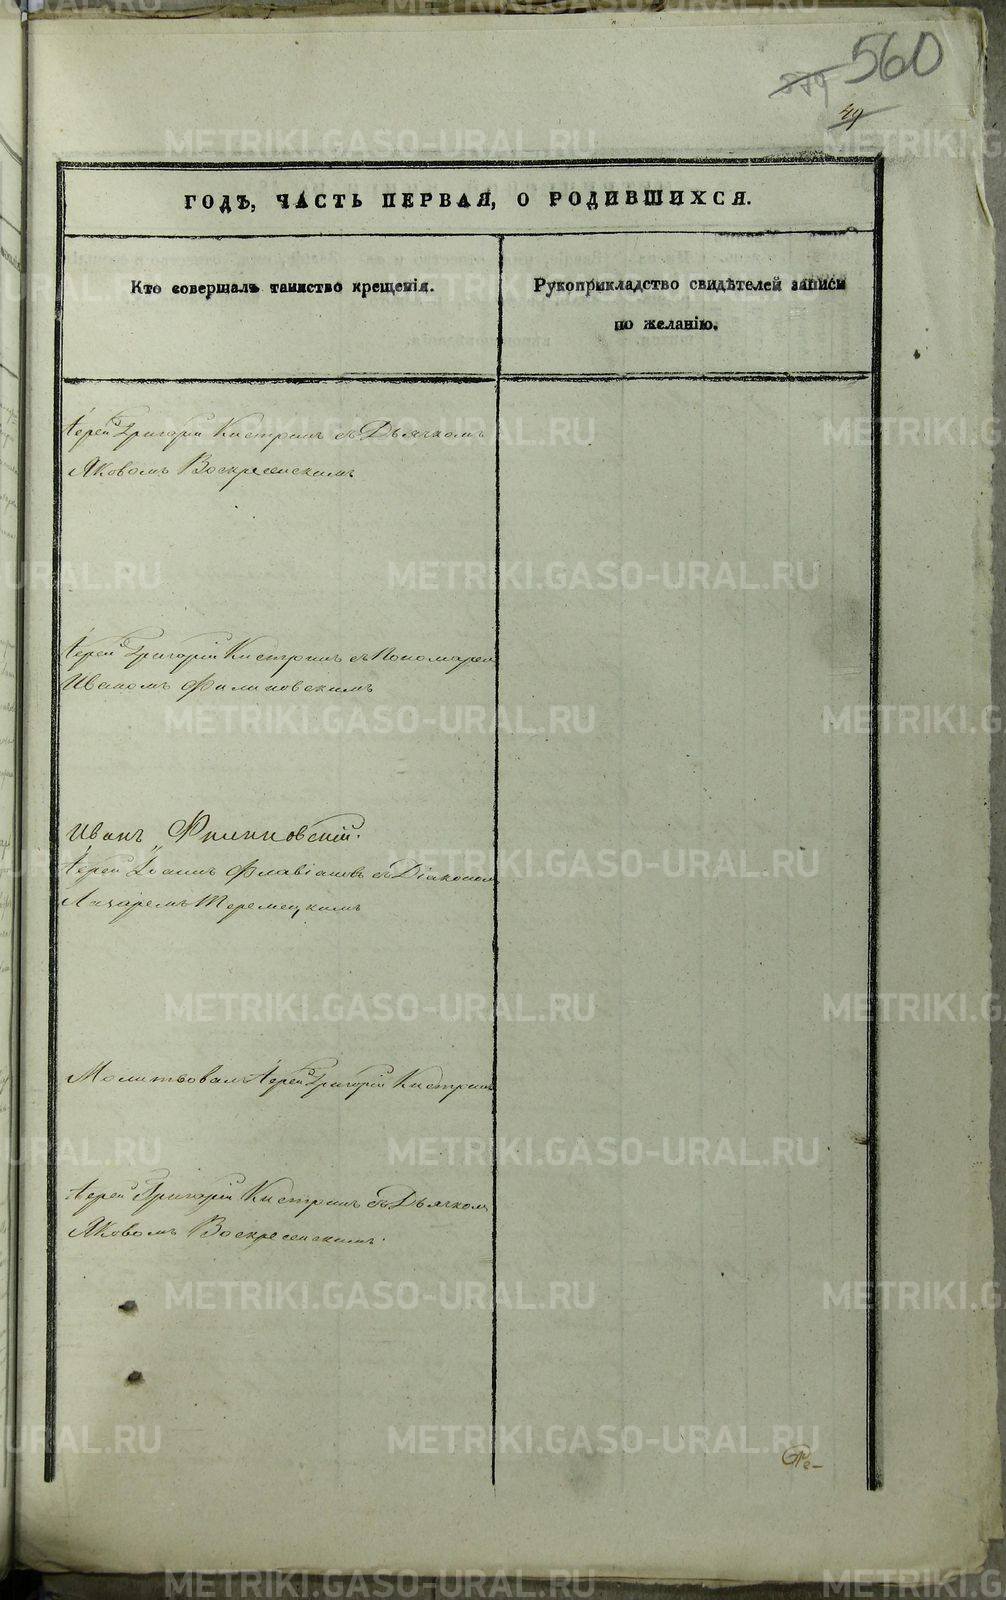 560
49
ГОДЪ, ЧАСТЬ ПЕРВАЯ, О РОДИВШИХСЯ.
Кто совершалъ таинство крещенія.
Рукоприкладство свидѣтелей записи
по желанію.
Іерей Григорій Кистринъ съ Дьячкомъ
Яковомъ Воскресенскимъ
Іерей Григорій Кистринъ съ Пономарем
Иваномъ Филиповскимъ
Иванъ Филиповскій.
Іерей Іоаннъ Флавіановъ съ Діакономъ
Лазаремъ
Молитвовалъ Іерей Григорій Кистринъ
Іерей Григорій Кистринъ съ Дьячкомъ
Яковомъ Воскресенскимъ.
METRIKI.GASO-URAL.RU